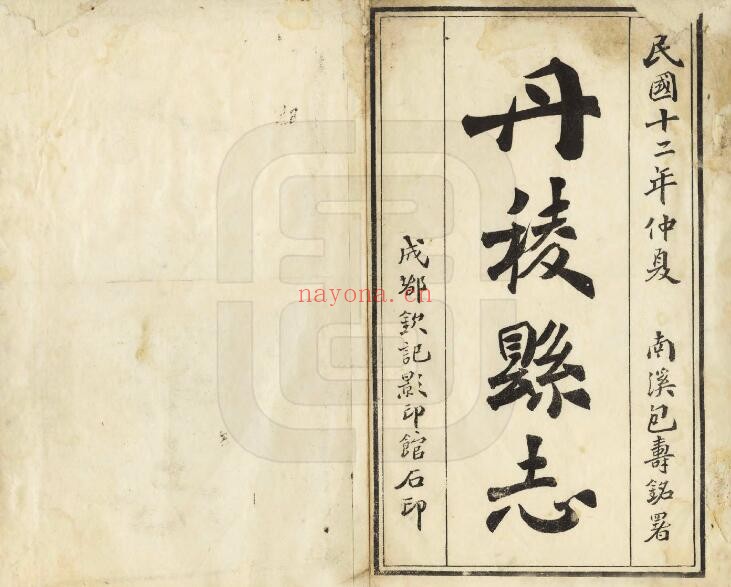 民國十二年仲夏 南溪包壽銘署
丹稜縣志
成都欽記影印館石印
nayona.cn